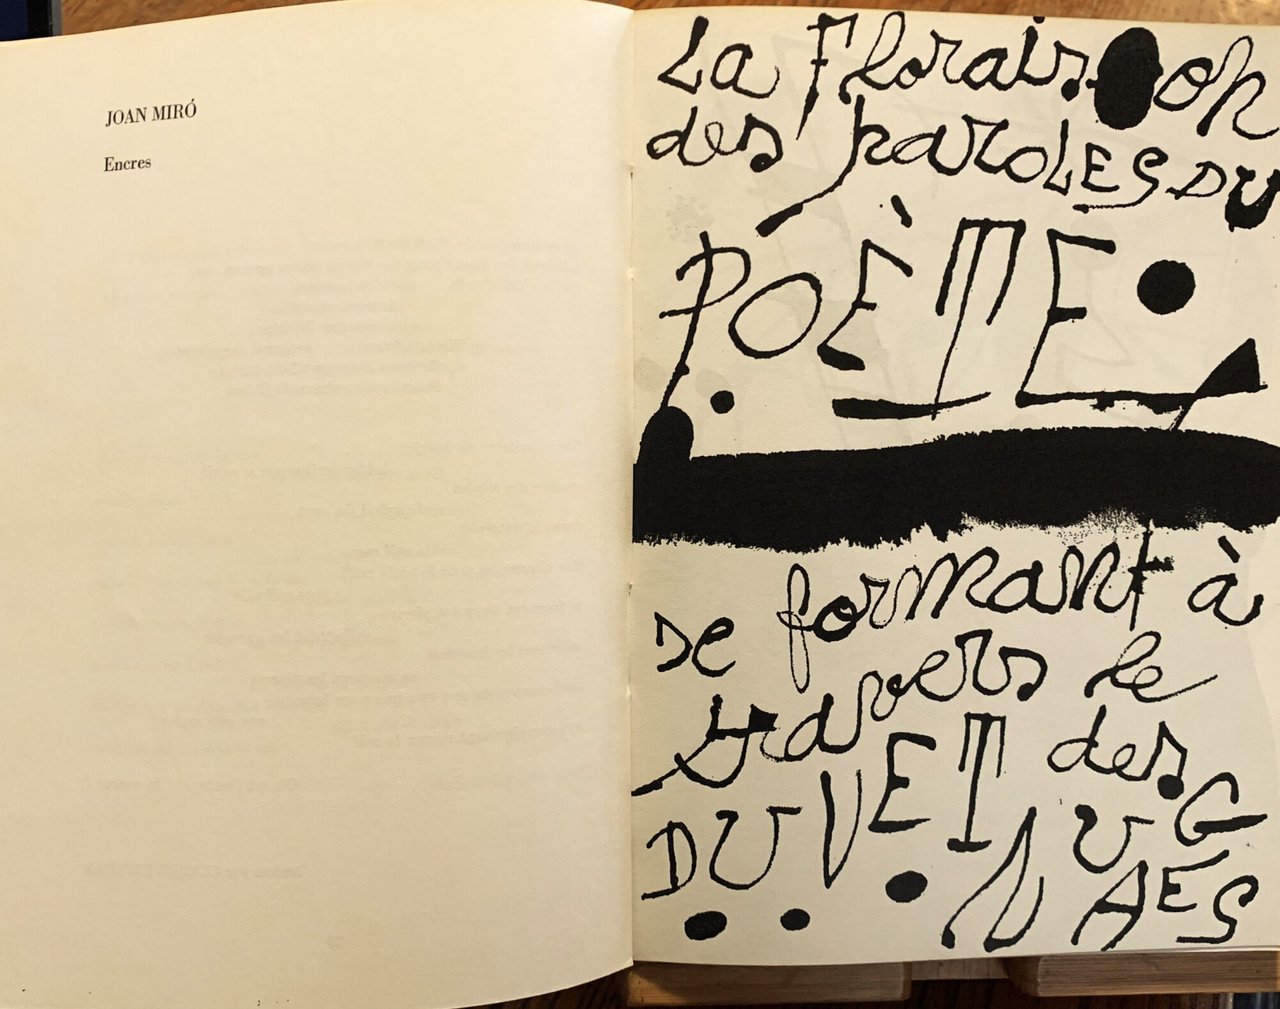 JOAN MIRÓ
Encres
La Floraison
des paroles DU
POÈTE
De formant à
travers le
DUVET des
NUAGES